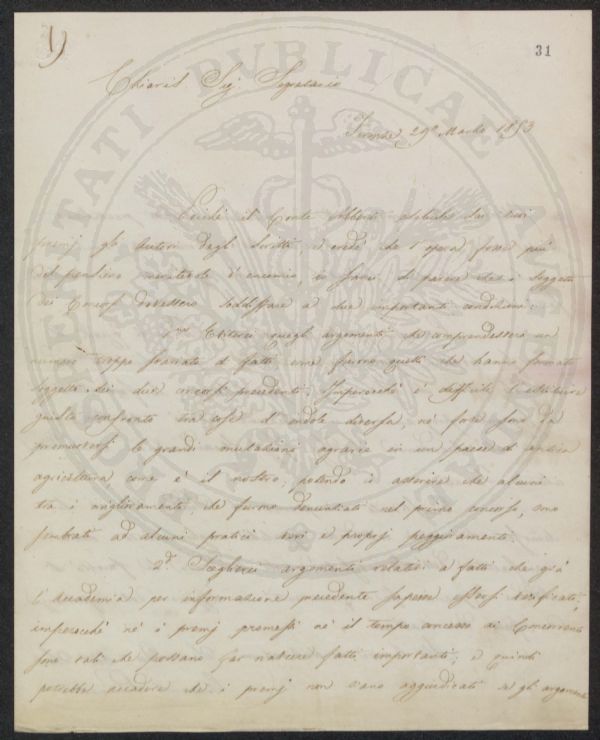 1)
31
Chiaris. Sig. Segretario
Firenze 29 Marzo 1853
Poiché il Conte Alberti esclude dai suoi
premj gli Autori degli scritti, e crede che l'opera fosse più
del pensiero meritevole d'encomio, io sarei di parere che i soggetti
dei Concorsi dovessero soddisfare a due importanti condizioni:
1ma Evitarsi quegli argomenti che comprendessero un
numero troppo svariato di fatti come furono quelli che hanno formato
soggetto dei due concorsi precedenti. Imperocché è difficile l'istituire
giusto confronto tra cose d'indole diversa, né forse sono da
promuoversi le grandi mutazioni agrarie in un paese di antica
agricoltura come è il nostro, potendo io asserire che alcuni
tra i miglioramenti che furono denunciati nel primo concorso, sono
sembrati ad alcuni pratici veri e proprj peggioramenti.
2da Scegliersi argomenti relativi a fatti che già
l'Accademia per informazione precedente sapesse essersi verificati,
imperocché né i premj promessi né il tempo concesso ai Concorrenti
sono tali che possano far nascere fatti importanti; e quindi
potrebbe accadere che i premj non siano aggiudicati se gli argomenti